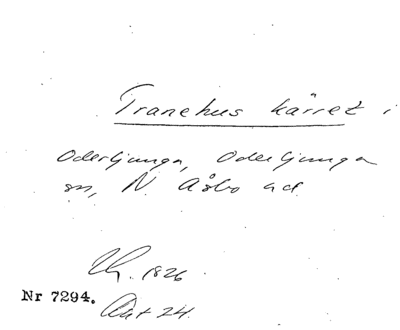 Tranehus kärret i
Oderljunga, Oderljunga
sn, N. Åsbo hd
1826
Nr 7294. Akt 24.